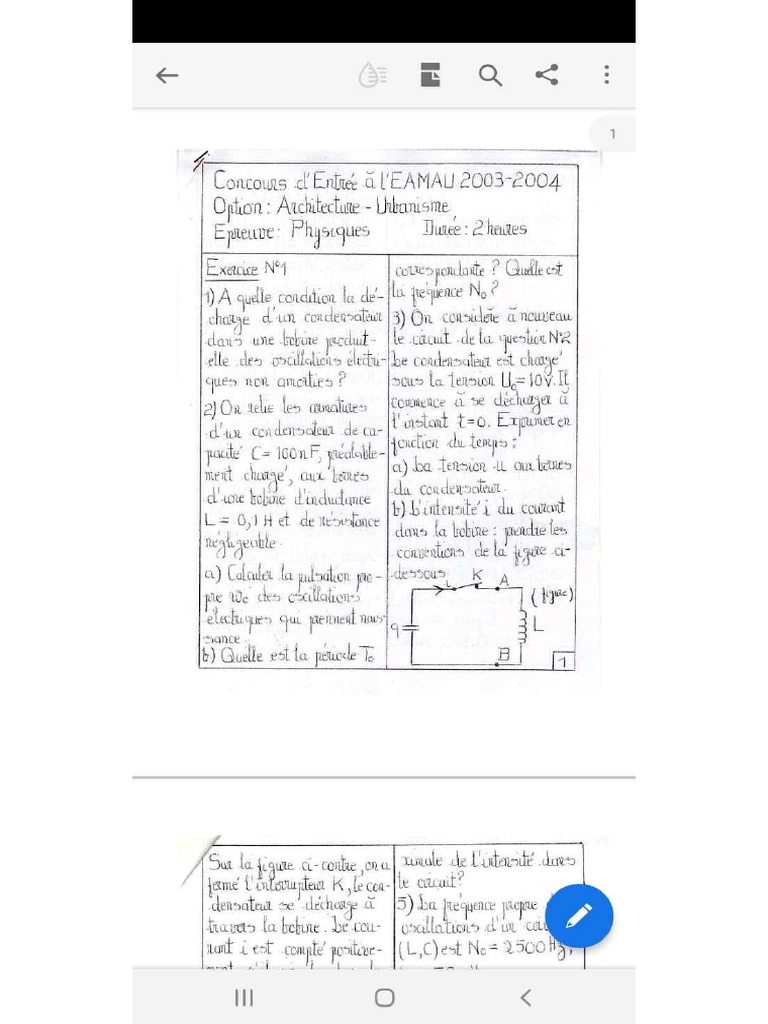 1
1.
Concours d'Entrée à L'EAMAU 2003-2004
Option: Architecture - Urbanisme
Epreuve: Physiques Durée: 2 heures
Exercice N°1
1) A quelle condition la dé-
charge d'un condensateur
dans une bobine produit-
elle des oscillations électri-
ques non amorties ?
2) On relie les armatures
d'un condensateur de ca-
pacité C = 100 nF, préalable-
ment chargé, aux bornes
d'une bobine d'inductance
L = 0,1 H et de résistance
négligeable.
a) Calculer la pulsation pro-
pre Wo des oscillations
électriques qui prennent nais-
sance.
b) Quelle est la période To
correspondante ? Quelle est
la fréquence No ?
3) On considère à nouveau
le circuit de la question N°2
Le condensateur est chargé
sous la tension Uc = 10V. Il
commence à se décharger à
l'instant t=0. Exprimer en
fonction du temps :
a) La tension u aux bornes
du condensateur.
b) L'intensité i du courant
dans la bobine : prendre les
conventions de la figure ci-
dessous.
i K A
(figure)
q L
B
1
Sur la figure ci-contre, on a
fermé l'interrupteur K, le con-
densateur se décharge à
travers la bobine. Le cou-
rant i est compté positive-
ximale de l'intensité dans
le circuit?
5) La fréquence propre
oscillations d'un
(L,C) est No = 2500 Hz,